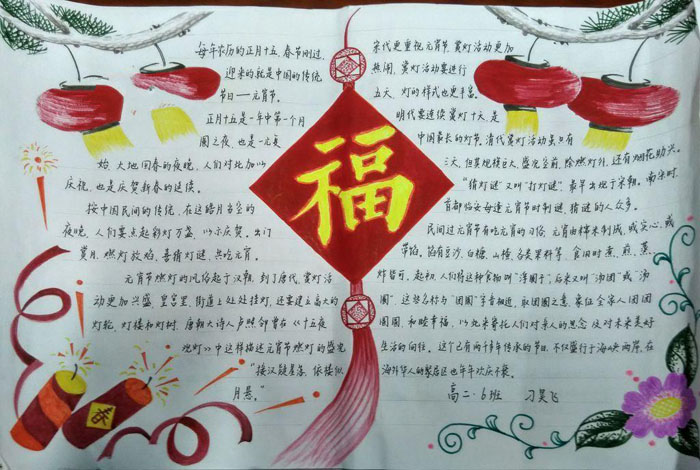 每年农历的正月十五 春节刚过,
迎来的就是中国的传统
节日——元宵节。
正月十五是一年中第一个月
圆之夜, 也是一元复
始 大地回春的夜晚, 人们对此加以
庆祝, 也是庆贺新春的延续。
按中国民间的传统, 在这皓月高空的
夜晚, 人们要点起彩灯万盏, 以示庆贺。出门
赏月 燃灯放焰, 喜猜灯谜, 共吃元宵
元宵节燃灯的风俗起于汉朝, 到了唐代, 赏灯活
动更加兴盛, 皇宫里、街道上处处挂灯, 还要建立高大的
灯轮, 灯楼和灯树, 唐朝大诗人卢照邻曾在《十五夜
观灯》中这样描述元宵节燃灯的盛况
“接汉疑星落, 依楼似
月悬。”
福
春
宋代更重视元宵节 赏灯活动更加
热闹, 赏灯活动要进行
五天, 灯的样式也更丰富。
明代要连续赏灯十天, 是
中国最长的灯节, 清代赏灯活动虽只有
三天, 但其规模巨大, 盛况空前, 除燃灯外, 还有烟花助兴。
“猜灯谜”又叫“打灯谜”, 最早出现于宋朝。南宋时,
首都临安每逢元宵节时制谜, 猜谜的人众多。
民间过元宵节有吃元宵的习俗, 元宵由糯米制成, 或实心, 或
带馅。馅有豆沙, 白糖, 山楂, 各类果料等, 食用时煮, 煎, 蒸
炸皆可, 起初, 人们将这种食物叫“浮圆子”, 后来又叫“汤团”或“汤
圆”, 这些名称与“团圆”字音相近, 取团圆之意, 象征全家人团团
圆圆, 和睦幸福, 以此来寄托人们对亲人的思念 及对未来美好
生活的向往。这个已有两千多年传承的节日, 不仅盛行于海峡两岸, 在
海外华人的聚居区也年年欢庆不衰。
高二·6班 刁昊飞